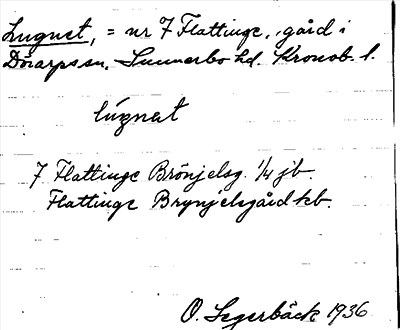 Lugnet, = nr 7 Flattinge, gård i
Dörarps sn. Sunnerbo hd. Kronob. l.
lúgnat
7 Flattinge Brönjelsg. 1/4 jb.
Flattinge Brynjelsgård kb.
O. Segerbäck 1936